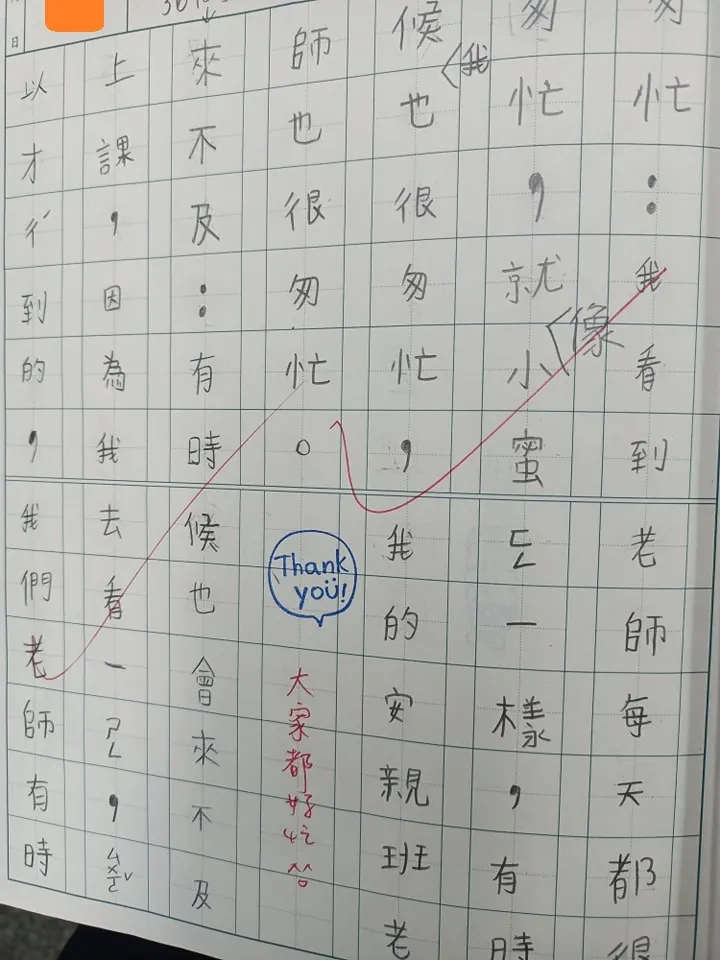 匆忙：我看到老師每天都很
匆忙，就像小蜜ㄈㄥ一樣，有時
候我也很匆忙，我的安親班老
師也很匆忙。
Thank you!
大家都好忙
來不及：有時候也會來不及
上課，因為我去看一ㄕㄥ，ㄙㄨㄛˇ
以才ㄔˊ到的，我們老師有時
日